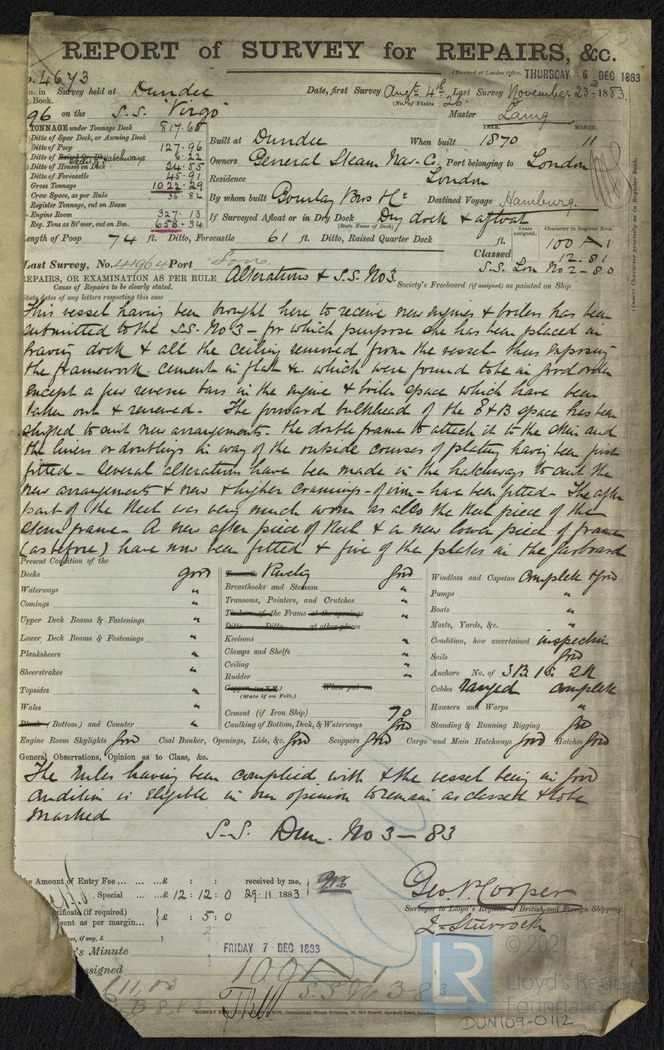 REPORT of SURVEY for REPAIRS, &c.
(Received at London Office, THURSDAY 6 DEC 1883
No. 4673
No. in Survey held at Dundee Date, first Survey Augt 4th Last Survey November 23rd 1883.
Book. (No. of Visits 26)
96 on the S.S. "Virgo" Master Laing
TONNAGE under Tonnage Deck 817.68
Ditto of Spar Deck, or Awning Deck
Ditto of Poop 127.96
Ditto of Hatchways 6.22
Ditto of Houses on Deck 24.55
Ditto of Forecastle 45.91
Gross Tonnage 1022.29
Crew Space, as per Rule 36.82
Register Tonnage, cut on Beam
Engine Room 327.13
Reg. Tons as St'mer, cut on Bm. 658.34
YEAR. MONTH.
Built at Dundee When built 1870 11
Owners General Steam Nav. C. Port belonging to London
Residence London
By whom built Gourlay Bros & Co Destined Voyage Hamburg.
If Surveyed Afloat or in Dry Dock Dry dock & afloat
(State Name of Dock)
Length of Poop 74 ft. Ditto, Forecastle 61 ft. Ditto, Raised Quarter Deck ft.
Years assigned. Character in Register Book.
100 A 1
Classed 12.81
S.S. Lon No 2-80
Last Survey, No. 44964 Port Lon
REPAIRS, OR EXAMINATION AS PER RULE Alterations & S.S. No 3.
Society's Freeboard (if assigned) as painted on Ship
Cause of Repairs to be clearly stated.
State dates of any letters respecting this case
This vessel having been brought here to receive new engines & boilers has been
submitted to the S.S. No 3 - for which purpose she has been placed in
graving dock & all the ceiling removed from the vessel thus exposing
the framework cement in flat &c. which were found to be in good order
except a few reverse bars in the engine & boiler space which have been
taken out & renewed. The forward bulkhead of the E & B space has been
shifted to suit new arrangements the double frame to attach it to the skin and
the liners or doublings in way of the outside courses of plating having been
fitted - Several alterations have been made in the hatchways to suit the
new arrangements & new & higher coamings - of iron - have been fitted - The after
part of the keel was being much worn as also the keel piece of the
stern frame - A new after piece of keel & a new lower piece of frame
(as before) have now been fitted & five of the plates in the garboard
Present Condition of the
Decks good
Waterways "
Comings "
Upper Deck Beams & Fastenings "
Lower Deck Beams & Fastenings "
Planksheers "
Sheerstrakes "
Topsides "
Wales "
(Bottom) and Counter "
Riveting good
Breasthooks and Stemson "
Transoms, Pointers, and Crutches "
Timbers of the Frame at the openings
Ditto Ditto at other places
Keelsons "
Clamps and Shelfs "
Ceiling "
Rudder "
(State if on Felt.)
Cement (if Iron Ship) go
Caulking of Bottom, Deck, & Waterways good
Windlass and Capstan Complete & good
Pumps "
Boats "
Masts, Yards, &c. "
Condition, how ascertained inspection
Sails good
Anchors No. of 3 B 1 S. 2 K
Cables ranged complete
Hawsers and Warps "
Standing & Running Rigging good
Engine Room Skylights good Coal Bunker, Openings, Lids, &c. good Scuppers good Cargo and Main Hatchways good Hatches good
General Observations, Opinion as to Class, &c.
The rules having been complied with & the vessel being in good
condition is eligible in our opinion to remain as classed & to be
marked
S.S. Dun. No 3 - 83
The Amount of Entry Fee ... £ : : received by me,
Special ... £ 12 : 12 : 0 29.11.1883
Certificate (if required) £ : 5 : 0
sent as per margin...
Geo N Cooper
Surveyor to Lloyd's Register of British and Foreign Shipping.
J. Sturrock
's Minute FRIDAY 7 DEC 1883
assigned 100 A 1
S.S. No 3-83
Lloyd's Register
Foundation
DUN109-0112